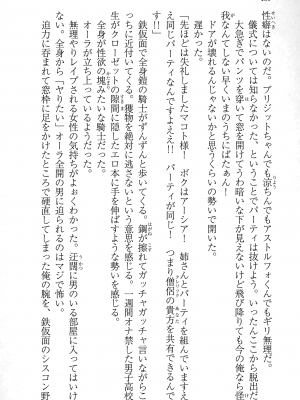 性癖はないのだ。ブリジットちゃんでも涼ちんでもアストルフォくんでもギリ無理だ。
儀式については知らなかった、ということでパーティは抜けよう。いったんここから脱出だ
大急ぎでパンツを穿いて窓を開けてうわ暗いな下が見えないけど飛び降りても今の俺なら怪
我なんてしない早くいまのうちにばたぁん！
ドアが壊れるんじゃないかと思うくらいの勢いで開いた。
遅かった。
「先ほどは失礼しましたマコト様！　ボクはアーシア！　姉さんとパーティを組んでいますえ
え同じパーティなんですよええ!!　パーティが同じ！　つまり僧侶の貴方を共有できるんで
す!!」
鉄仮面で全身鎧の騎士がずんずんと歩いてくる。鋼が擦れてガッチャガッチャ言いながらこ
っちに近付いてくる。獲物を絶対に逃さないという意思を感じる。一週間オナ禁した男子高校
生がクローゼットの隙間に隠したエロ本に手を伸ばすような勢いを感じる。
全身が性欲の塊みたいな騎士だった。
オーラが立ち上っているようだった。
無理やりレイプされる女性の気持ちがよおくわかった。迂闊に男のいる部屋に入ってはいけ
ない。全身から「ヤりたい」オーラ全開の男に迫られるのはマジで怖い。
迫力に呑まれて窓枠に足をかけたところで硬直してしまった俺の腕を、鉄仮面のシスコン野